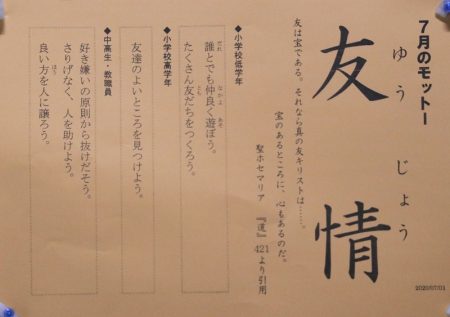 7月のモットー
友情
ゆうじょう
友は宝である。それなら真の友キリストは……。
宝のあるところに、心もあるのだ。
聖ホセマリア 『道』421より引用
◆小学校低学年
誰とでも仲良く遊ぼう。
だれ なかよ あそ
たくさん友だちをつくろう。
とも
◆小学校高学年
友達のよいところを見つけよう。
◆中高生・教職員
好き嫌いの原則から抜けだそう。
さりげなく、人を助けよう。
良い方を人に譲ろう。
ほう
2020/07/01